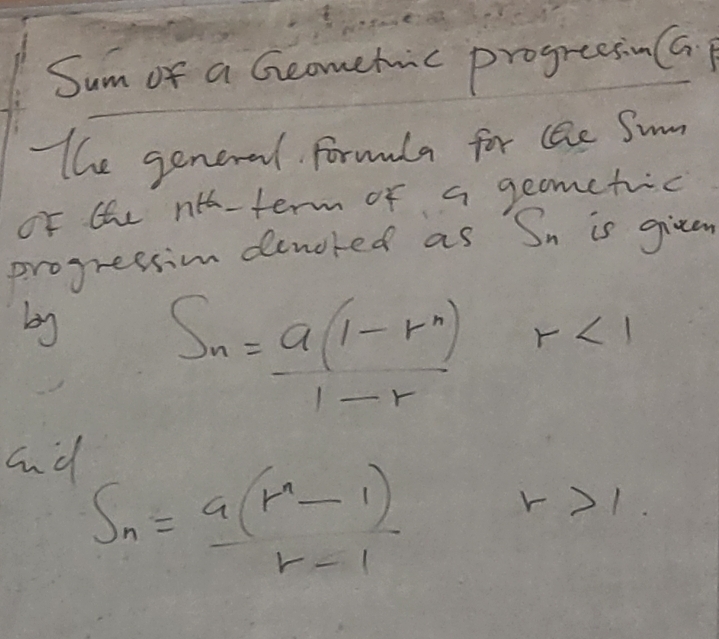 Sum of a Geometric progression (G.P
The general formula for the Sum
of the nth-term of a geometric
progression denoted as Sn is given
by Sn = a(1 - rⁿ) / 1 - r r < 1
and
Sn = a(rⁿ - 1) / r - 1 r > 1.